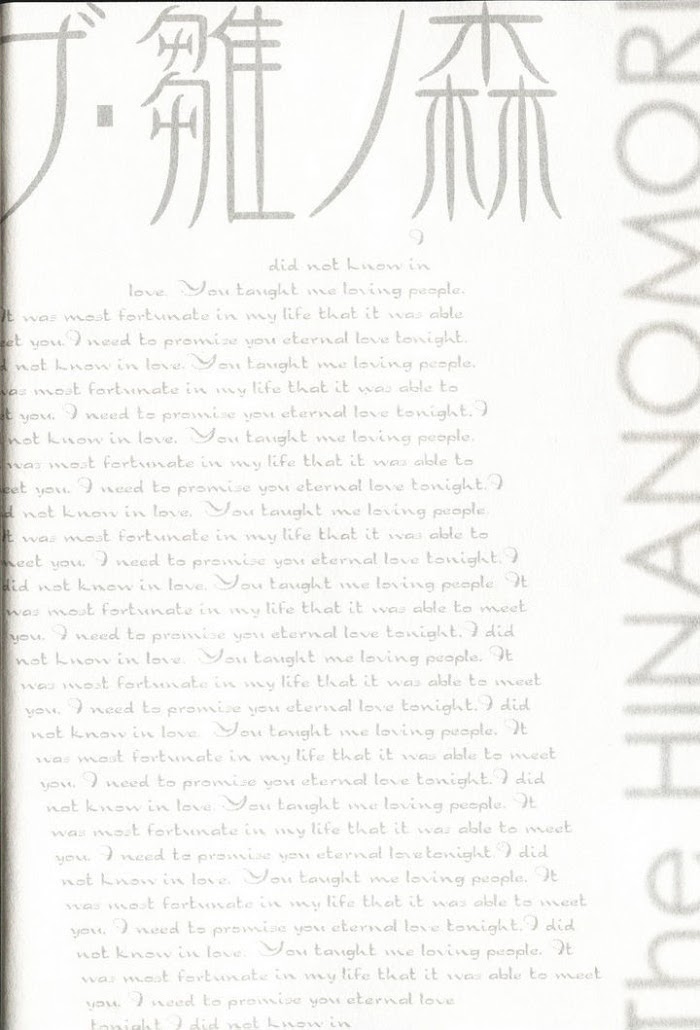 ブ・雛ノ森
The HINANOMORI
I
did not know in
love. You taught me loving people.
It was most fortunate in my life that it was able
et you. I need to promise you eternal love tonight.
d not know in love. You taught me loving people.
was most fortunate in my life that it was able to
et you. I need to promise you eternal love tonight. I
not know in love. You taught me loving people.
was most fortunate in my life that it was able to
eet you. I need to promise you eternal love tonight. I
d not know in love. You taught me loving people.
It was most fortunate in my life that it was able to
meet you. I need to promise you eternal love tonight. I
did not know in love. You taught me loving people. It
was most fortunate in my life that it was able to meet
you. I need to promise you eternal love tonight. I did
not know in love. You taught me loving people. It
was most fortunate in my life that it was able to meet
you. I need to promise you eternal love tonight. I did
not know in love. You taught me loving people. It
was most fortunate in my life that it was able to meet
you. I need to promise you eternal love tonight. I did
not know in love. You taught me loving people. It
was most fortunate in my life that it was able to meet
you. I need to promise you eternal love tonight. I did
not know in love. You taught me loving people. It
was most fortunate in my life that it was able to meet
you. I need to promise you eternal love tonight. I did
not know in love. You taught me loving people. It
was most fortunate in my life that it was able to meet
you. I need to promise you eternal love
tonight. I did not know in